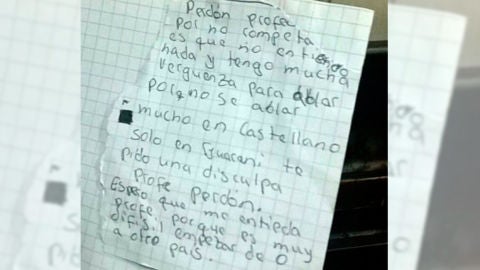 Perdón profe
por no competa
es que no entiendo
nada y tengo mucha
verguenza para ablar
porqno se ablar
mucho en Castellano
solo en Guaraní te
pido una disculpa
profe perdón.
Espro que me entieda
profe, porque es muy
difisil empezar de 0
a otro país.